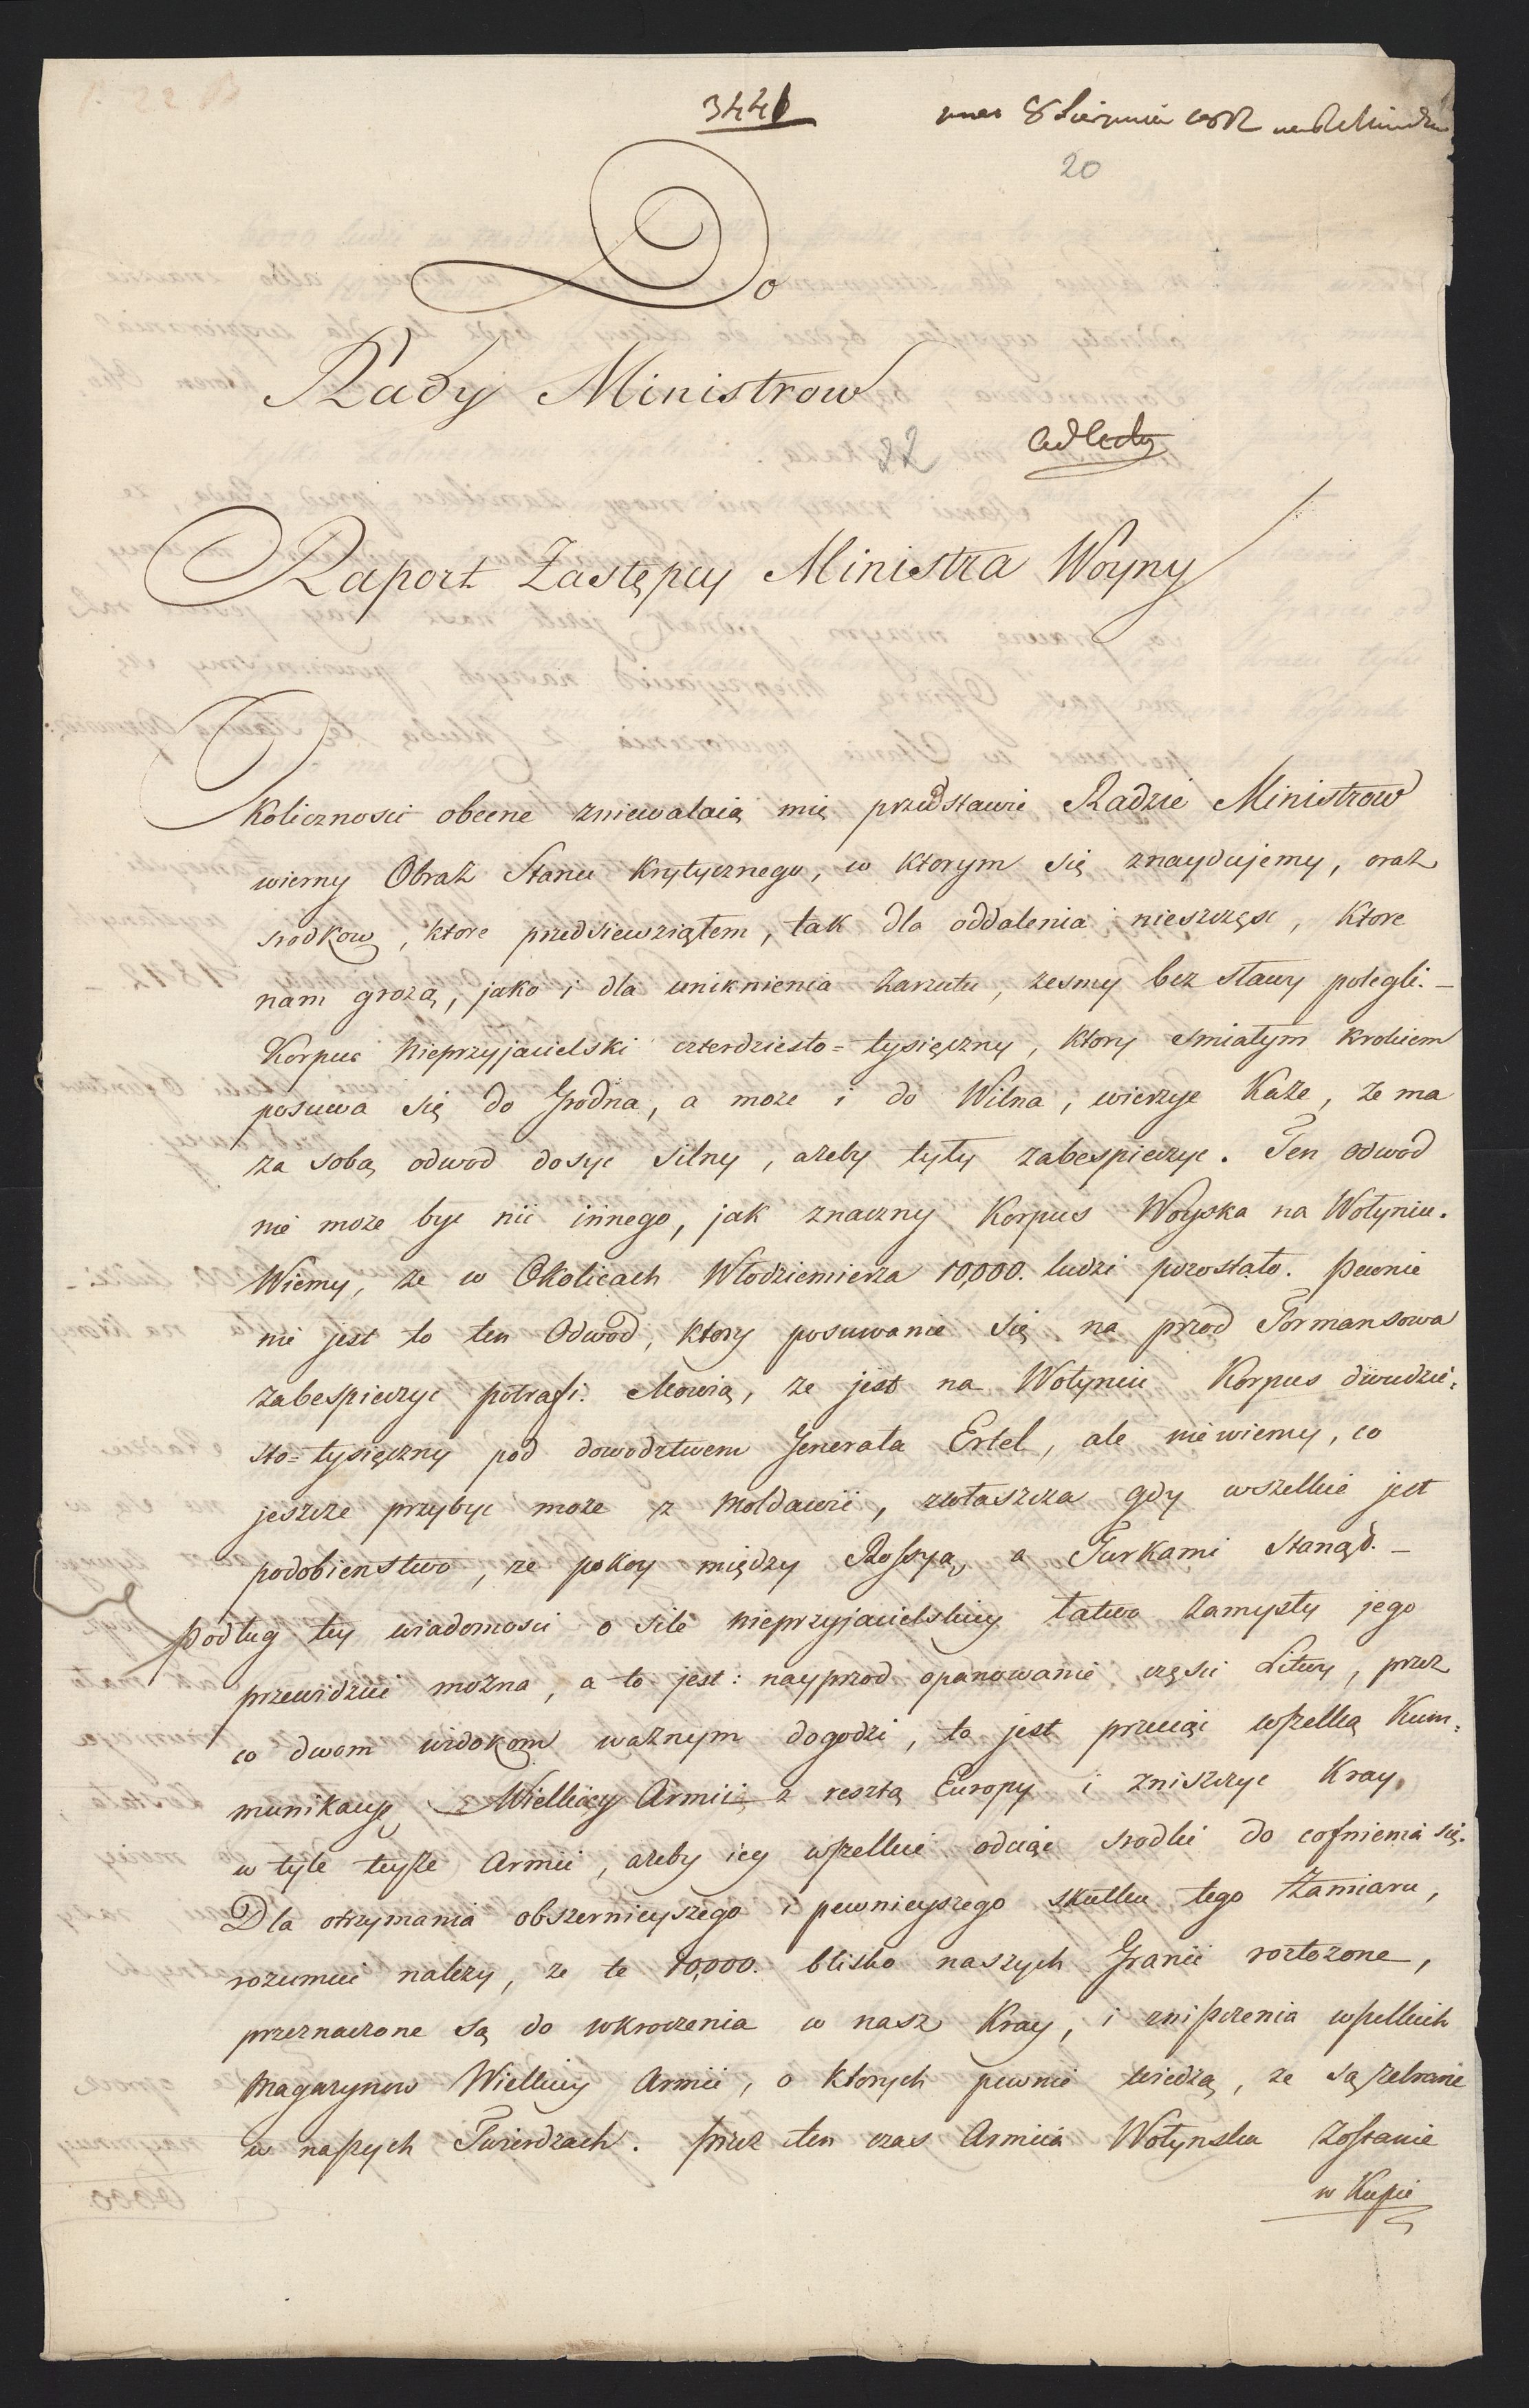 3441
8 Sierpnia
20
Do
Rady Ministrow
22
Raport Zastępcy Ministra Woyny
Okolicznosci obecne zniewalaią mię przedstawić Radzie Ministrow
wierny Obraz Stanu Krytycznego, w ktorym się znayduiemy, oraz
srodkow, ktore przedsiewziąłem, tak dla oddalenia nieszczęsc, ktore
nam grożą, jako i dla uniknienia zarzutu, żesmy bez sławy polegli. –
Korpus nieprzyjacielski czterdziesto=tysięczny, ktory smiałym krokiem
posuwa się do Grodna, a może i do Wilna, wierzyc każe, że ma
za sobą odwod dosyc silny, ażeby tyły zabespieczyc. Ten odwod
nie może byc nic innego, jak znaczny Korpus Woyska na Wołyniu.
Wiemy, że w Okolicach Włodziemierza 10,000. ludzi pozostało. Pewnie
nie jest to ten Odwod, ktory posuwanie się na przod Tormansowa
zabespieczyc potrafi. Mowią, że jest na Wołyniu Korpus dwudzie=
sto=tysięczny pod dowodztwem Generała Ertel, ale nie wiemy, co
jeszcze przybyc może z Mołdawii, zwłaszcza gdy wszelkie jest
podobienstwo, że pokoy między Rossyą, a Turkami stanął. –
Podług tey wiadomosci o sile nieprzyjacielskiey łatwo zamysły jego
przewidziec można, a to jest: nayprzod opanowanie częsci Litwy, przez
co dwom widokom ważnym dogodzi, to jest przeciąć wszelką Kum=
munikacyę Wielkiey Armii z resztą Europy i zniszczyc Kray
w tyle teyże Armii, ażeby iey wszelkie odciąć srodki do cofnienia się.
Dla otrzymania obszernieyszego i pewnieyszego skutku tego Zamiaru,
rozumieć należy, że te 10,000. blisko naszych Granic rozłożone,
przeznaczone są do wkroczenia w nasz Kray, i zniszczenia wszelkich
Magazynow Wielkiey Armii, o ktorych pewnie wiedzą, że są zebrane
w naszych Twierdzach. Przez ten czas Armiia Wołynska zostanie
w Kupie